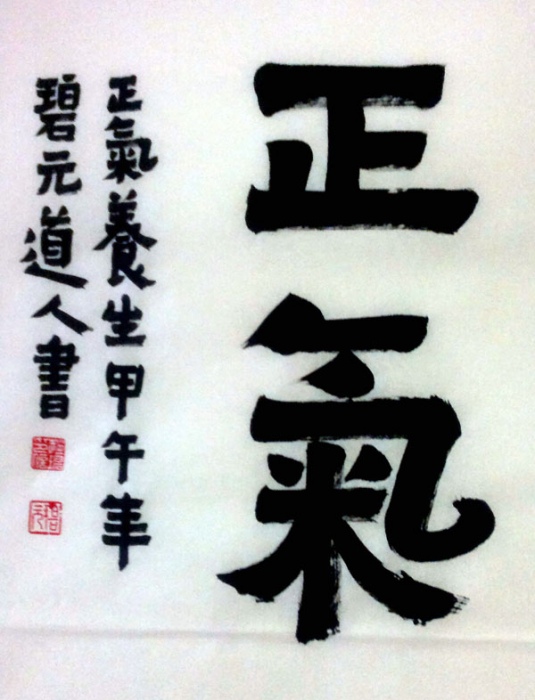 正氣
正氣養生甲午年
碧元道人書